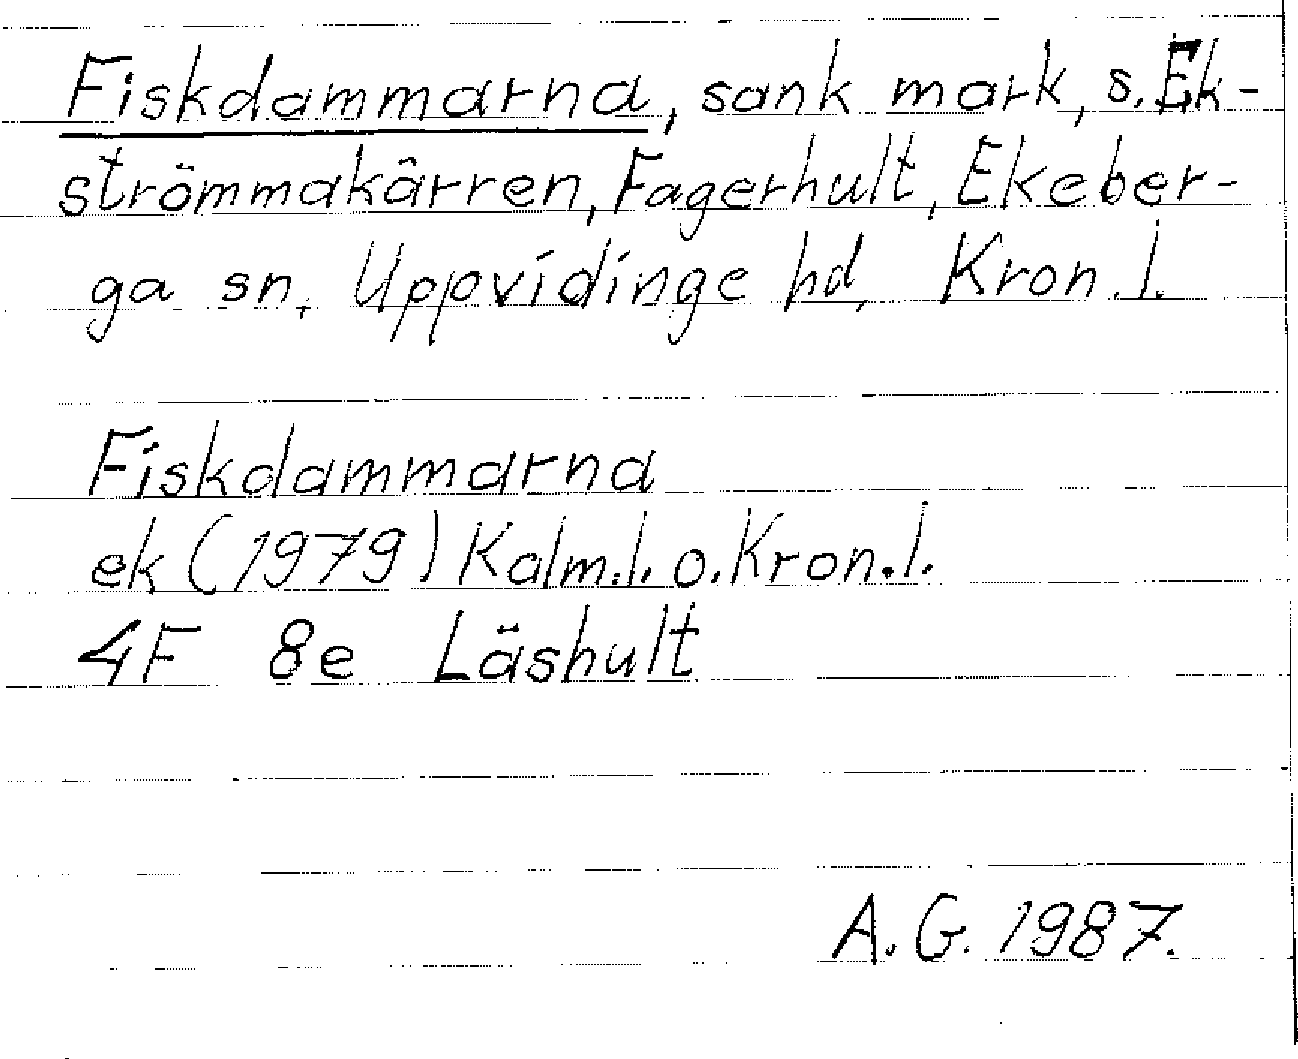 Fiskdammarna, sank mark, s. Ek-
strömmakärren, Fagerhult, Ekeber-
ga sn, Uppvidinge hd, Kron. l.
Fiskdammarna
ek (1979) Kalm.l. o. Kron.l.
4F 8e Läshult
A.G. 1987.